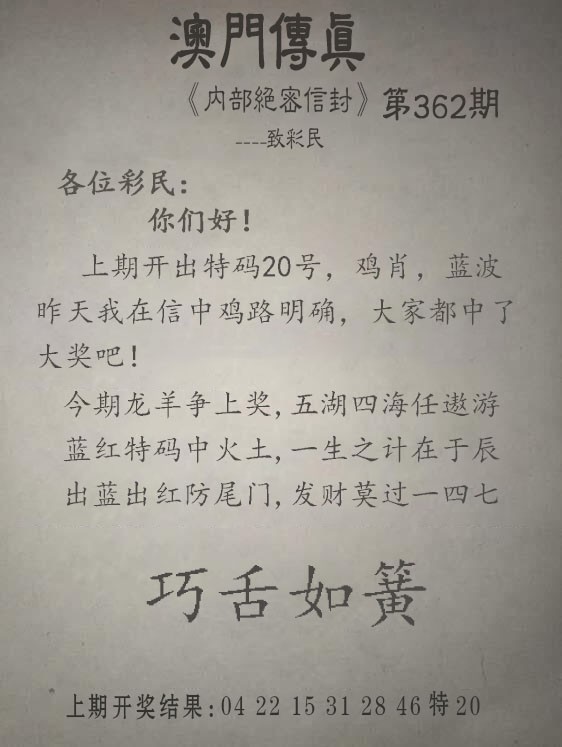 澳門傳眞
《内部絕密信封》第362期
----致彩民
各位彩民:
你们好!
上期开出特码20号，鸡肖，蓝波
昨天我在信中鸡路明确，大家都中了
大奖吧!
今期龙羊争上奖,五湖四海任遨游
蓝红特码中火土,一生之计在于辰
出蓝出红防尾门,发财莫过一四七
巧舌如簧
上期开奖结果:04 22 15 31 28 46 特 20